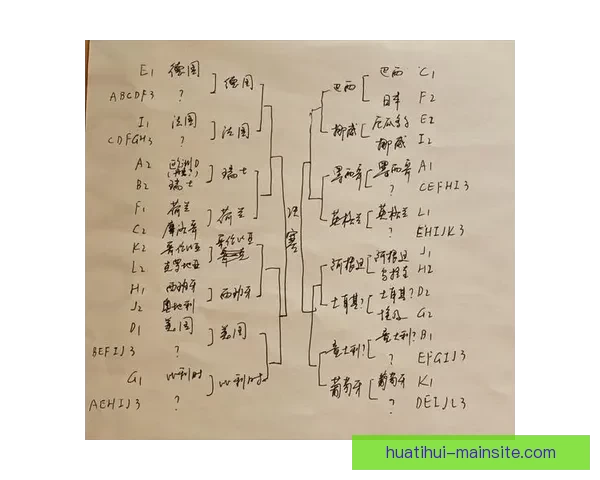 E1 德国
ABCDF3 ?
德国
I1 法国
CDFGH3 ?
法国
A2 欧洲D
B2 瑞士
瑞士
F1 荷兰
C2 摩洛哥
荷兰
K2 哥伦比亚
L2 克罗地亚
哥伦比亚
H1 西班牙
J2 奥地利
西班牙
D1 美国
BEFIJ3 ?
美国
G1 比利时
AEHIJ3 ?
比利时
决赛
巴西
巴西 C1
日本 F2
挪威
厄瓜多尔 E2
挪威 I2
墨西哥
墨西哥 A1
? CEFHI3
英格兰
英格兰 L1
? EHIJK3
阿根廷
阿根廷 J1
乌拉圭 H2
土耳其?
土耳其? D2
埃及 G2
意大利?
意大利? B1
? EFGIJ3
葡萄牙
葡萄牙 K1
? DEIJL3
huatihui-mainsite.com